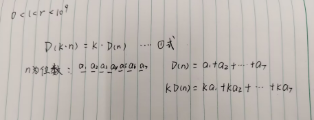 0 < l < r < 10⁹
D(k·n) = k·D(n) ···· ①式
n为位数：a₁ a₂ a₃ a₄ a₅ a₆ a₇
D(n) = a₁ + a₂ + ··· + a₇
kD(n) = ka₁ + ka₂ + ··· + ka₇